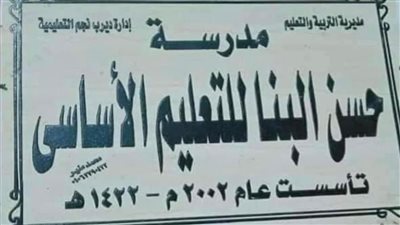 مديرية التربية والتعليم
إدارة ديرب نجم التعليمية
مدرسة
حسن البنا للتعليم الأساسى
تأسست عام ٢٠٠٢ م - ١٤٢٢ هـ